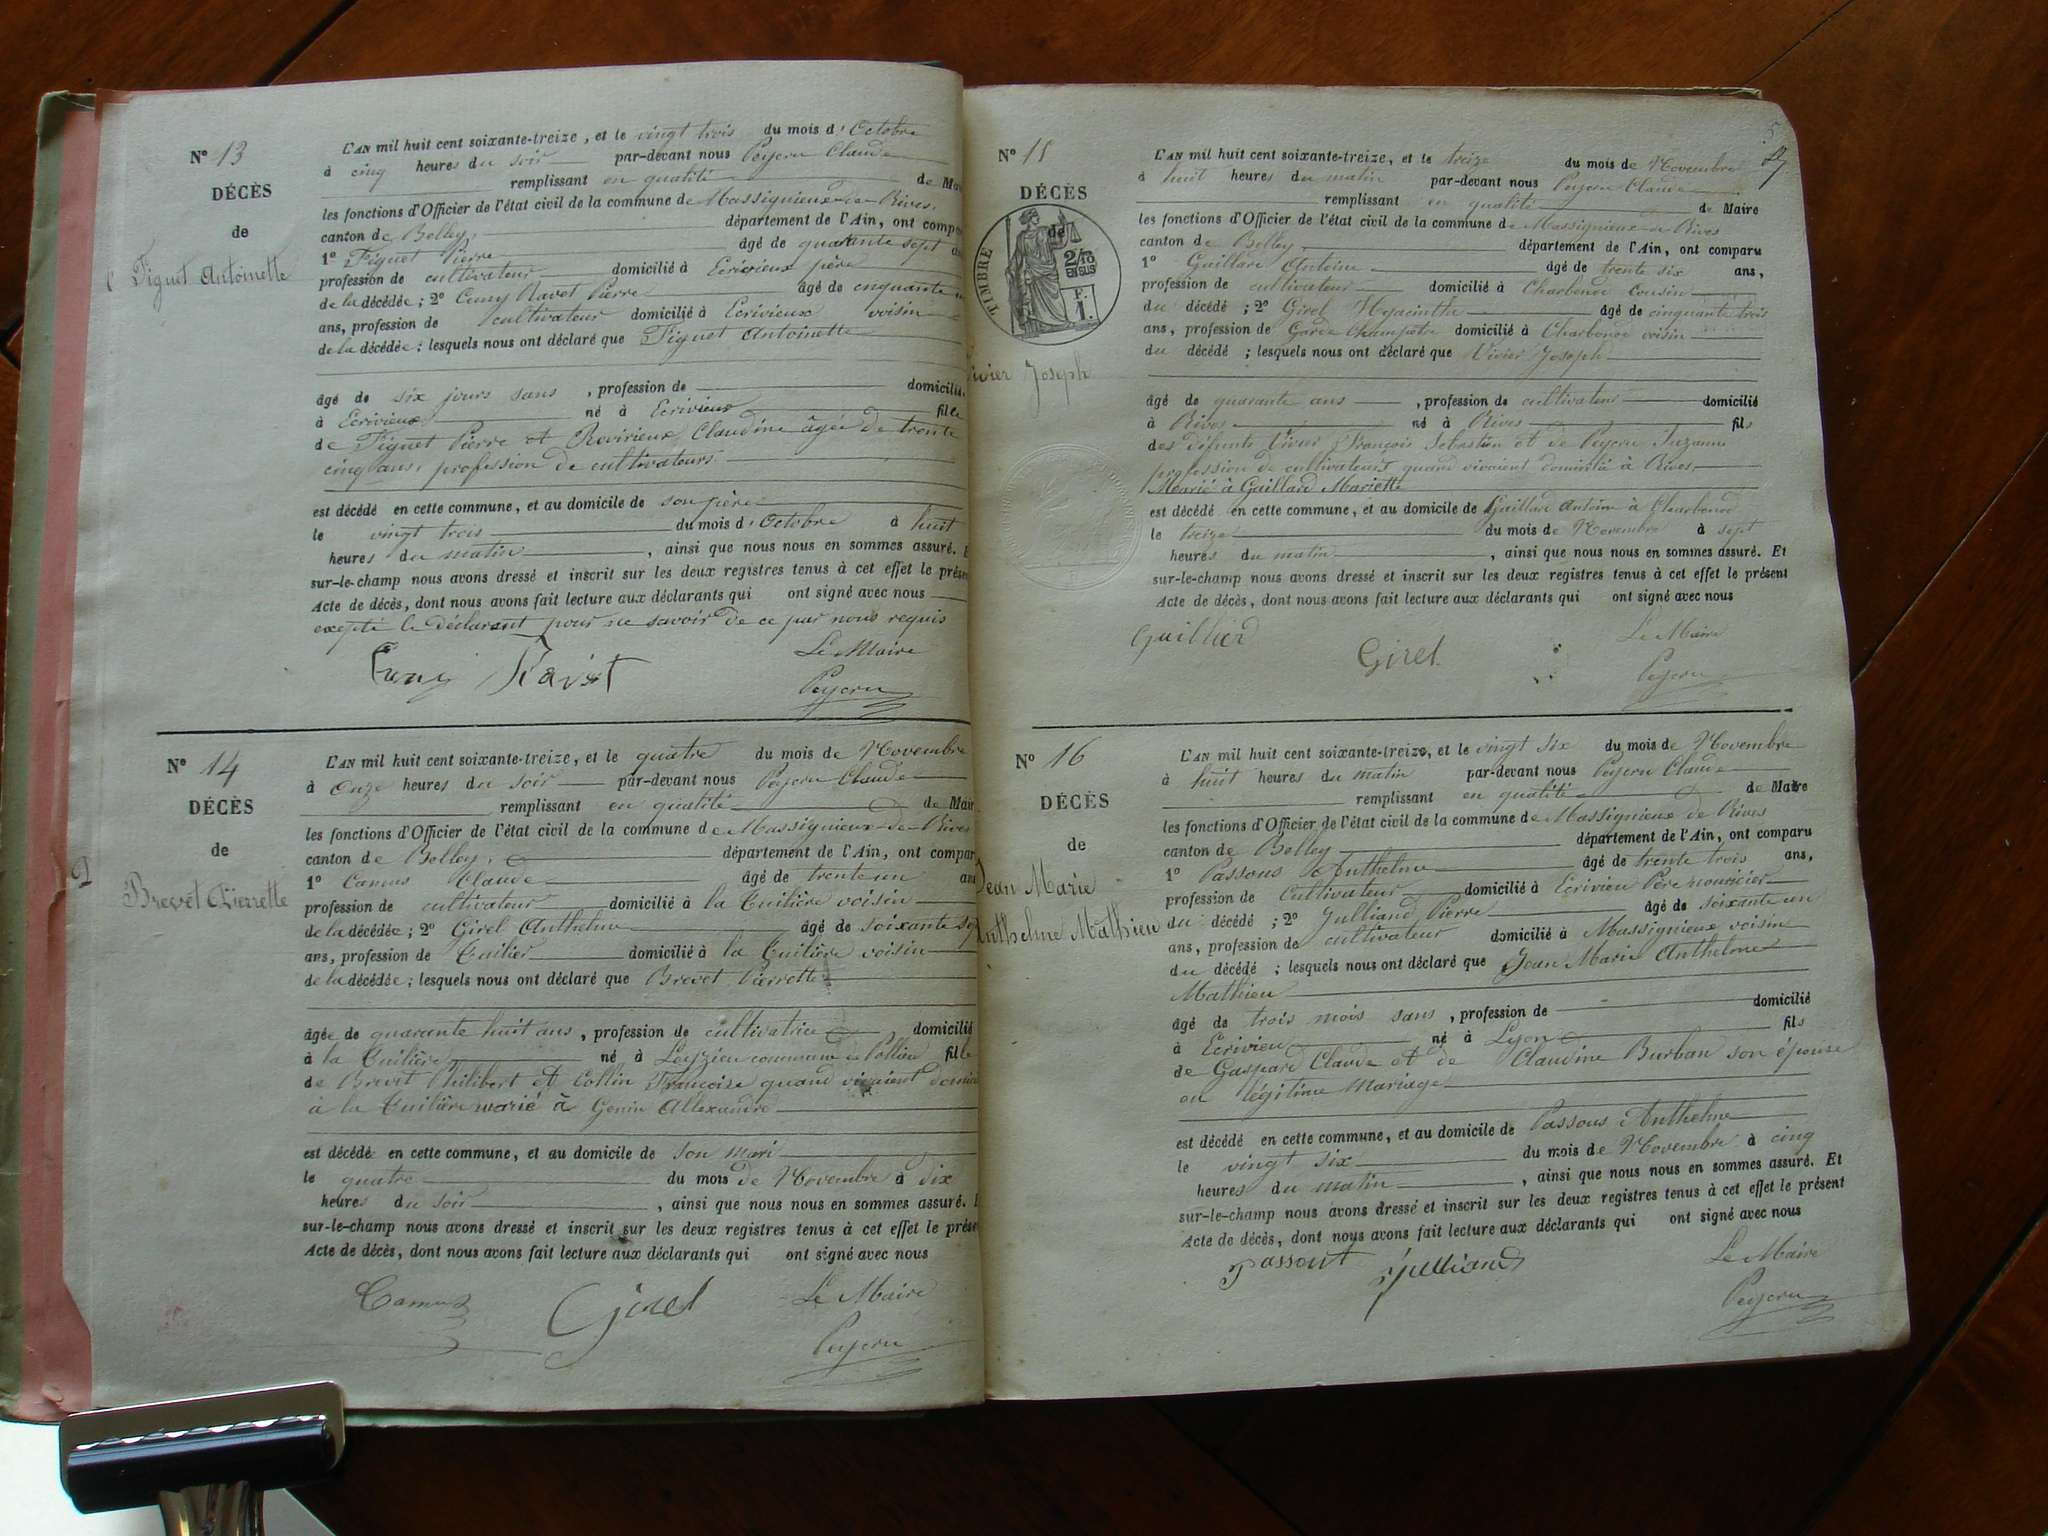 N° 13
DÉCÈS
de
Figuet Antoinette
L'AN mil huit cent soixante-treize, et le vingt trois du mois d'Octobre
à cinq heures du soir par-devant nous Peycru Claude
remplissant en qualité de Mai
les fonctions d'Officier de l'état civil de la commune de Massignieux-de-Rives
canton de Belley, département de l'Ain, ont comp
1° Figuet Pierre âgé de quarante sept
profession de cultivateur domicilié à Ecrivieux père
de la décédée; 2° Cuny Ravet Pierre âgé de cinquante
ans, profession de cultivateur domicilié à Ecrivieux voisin
de la décédée; lesquels nous ont déclaré que Figuet Antoinette
âgé de six jours sans, profession de domicilié
à Ecrivieux né à Ecrivieux fille
de Figuet Pierre et Claudine âgée de trente
cinq ans, profession de cultivateurs
est décédé en cette commune, et au domicile de son père
le vingt trois du mois d'Octobre à huit
heures du matin, ainsi que nous nous en sommes assuré. E
sur-le-champ nous avons dressé et inscrit sur les deux registres tenus à cet effet le prése
Acte de décès, dont nous avons fait lecture aux déclarants qui ont signé avec nous
excepté le déclarant pour ne savoir de ce par nous requis
Le Maire
Cuny Ravet
Peycru
N° 14
DÉCÈS
de
Brevet Pierrette
L'AN mil huit cent soixante-treize, et le quatre du mois de Novembre
à onze heures du soir par-devant nous Peycru Claude
remplissant en qualité de Mair
les fonctions d'Officier de l'état civil de la commune de Massignieux-de-Rives
canton de Belley, département de l'Ain, ont compar
1° Camus Claude âgé de trente un ans
profession de cultivateur domicilié à la Tuilière voisin
de la décédée; 2° Girel Anthelme âgé de soixante sep
ans, profession de Tuilier domicilié à la Tuilière voisin
de la décédée; lesquels nous ont déclaré que Brevet Pierrette
âgée de quarante huit ans, profession de cultivatrice domicilié
à la Tuilière né à Leyzieu commune de Pollieu fille
de Brevet Philibert et Collin Françoise quand vivaient domici
à la Tuilière marié à Genin Allexandre
est décédé en cette commune, et au domicile de son mari
le quatre du mois de Novembre à dix
heures du soir, ainsi que nous nous en sommes assuré. E
sur-le-champ nous avons dressé et inscrit sur les deux registres tenus à cet effet le prése
Acte de décès, dont nous avons fait lecture aux déclarants qui ont signé avec nous
Camus Girel Le Maire
Peycru
N° 15
DÉCÈS
de
TIMBRE
2/10
EN SUS
F.
1.
Vivier Joseph
L'AN mil huit cent soixante-treize, et le treize du mois de Novembre
à huit heures du matin par-devant nous Peycru Claude
remplissant en qualité de Maire
les fonctions d'Officier de l'état civil de la commune de Massignieux de Rives
canton de Belley, département de l'Ain, ont comparu
1° Guillard Antoine âgé de trente six ans,
profession de cultivateur domicilié à Charbonod cousin
du décédé; 2° Girel Hyacinthe âgé de cinquante trois
ans, profession de Garde Champêtre domicilié à Charbonod voisin
du décédé; lesquels nous ont déclaré que Vivier Joseph
âgé de quarante ans, profession de cultivateur domicilié
à Rives né à Rives fils
des défunts Vivier François Sébastien et de Peycru Suzanne
profession de cultivateurs quand vivaient domicilié à Rives
Marié à Guillard Mariette
est décédé en cette commune, et au domicile de Guillard Antoine à Charbonod
le treize du mois de Novembre à sept
heures du matin, ainsi que nous nous en sommes assuré. Et
sur-le-champ nous avons dressé et inscrit sur les deux registres tenus à cet effet le présent
Acte de décès, dont nous avons fait lecture aux déclarants qui ont signé avec nous
Guillard Girel Le Maire
Peycru
N° 16
DÉCÈS
de
Jean Marie
Anthelme Mathieu
L'AN mil huit cent soixante-treize, et le vingt six du mois de Novembre
à huit heures du matin par-devant nous Peycru Claude
remplissant en qualité de Maire
les fonctions d'Officier de l'état civil de la commune de Massignieux de Rives
canton de Belley département de l'Ain, ont comparu
1° Passous Anthelme âgé de trente trois ans,
profession de Cultivateur domicilié à Ecrivieu Père nouricier
du décédé; 2° Julliand Pierre âgé de soixante un
ans, profession de cultivateur domicilié à Massignieux voisin
du décédé; lesquels nous ont déclaré que Jean Marie Anthelme
Mathieu
âgé de trois mois sans, profession de domicilié
à Ecrivieu né à Lyon fils
de Gaspard Claude et de Claudine Burban son épouse
en légitime Mariage
est décédé en cette commune, et au domicile de Passous Anthelme
le vingt six du mois de Novembre à cinq
heures du matin, ainsi que nous nous en sommes assuré. Et
sur-le-champ nous avons dressé et inscrit sur les deux registres tenus à cet effet le présent
Acte de décès, dont nous avons fait lecture aux déclarants qui ont signé avec nous
Passout Julliand Le Maire
Peycru